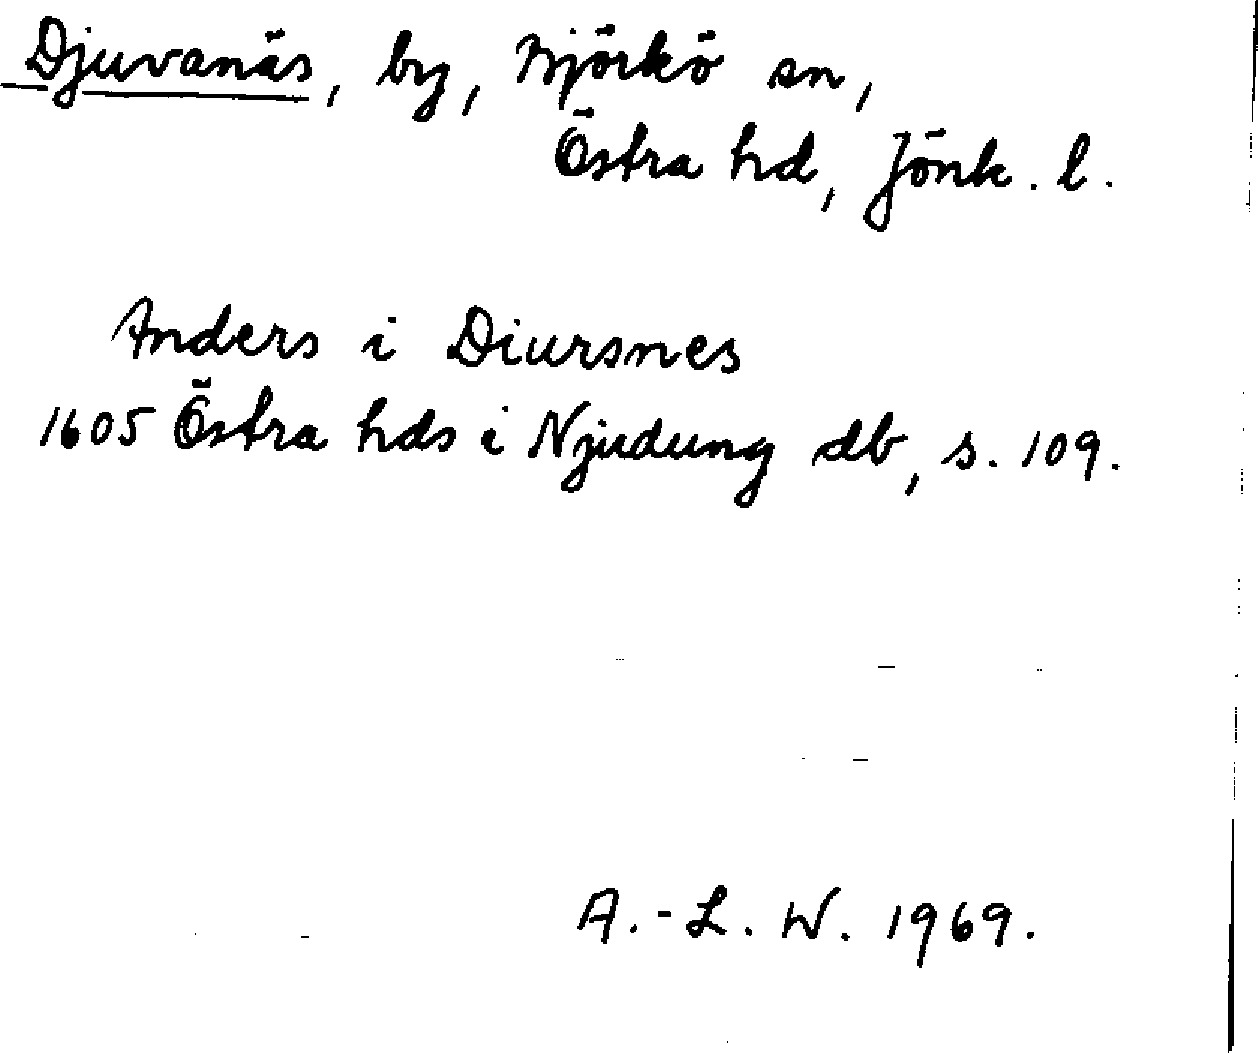 Djuvanäs, by, Björkö sn,
Östra hd, Jönk. l.
Anders i Diursnes
1605 Östra hds i Njudung db, s. 109.
A.-L. W. 1969.